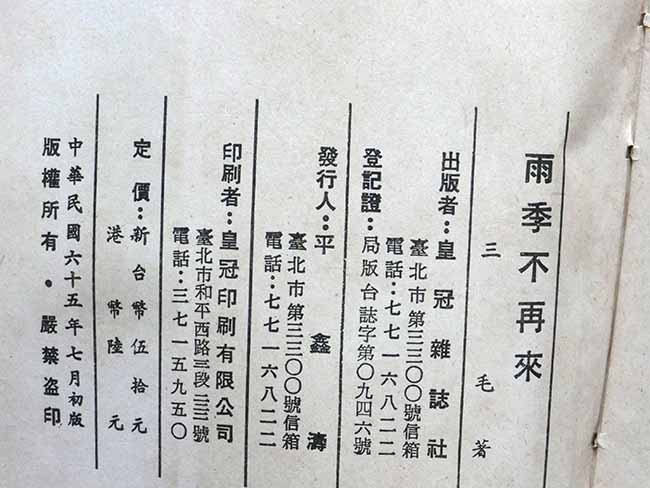 雨季不再來
三毛 著
出版者：皇冠雜誌社
臺北市第三三〇〇號信箱
電話：七七一六八二二
登記證：局版台誌字第〇九四六號
發行人：平鑫濤
臺北市第三三〇〇號信箱
電話：七七一六八二二
印刷者：皇冠印刷有限公司
臺北市和平西路三段三三號
電話：三七一五九五〇
定價：新台幣伍拾元
港幣陸元
中華民國六十五年七月初版
版權所有．嚴禁盜印